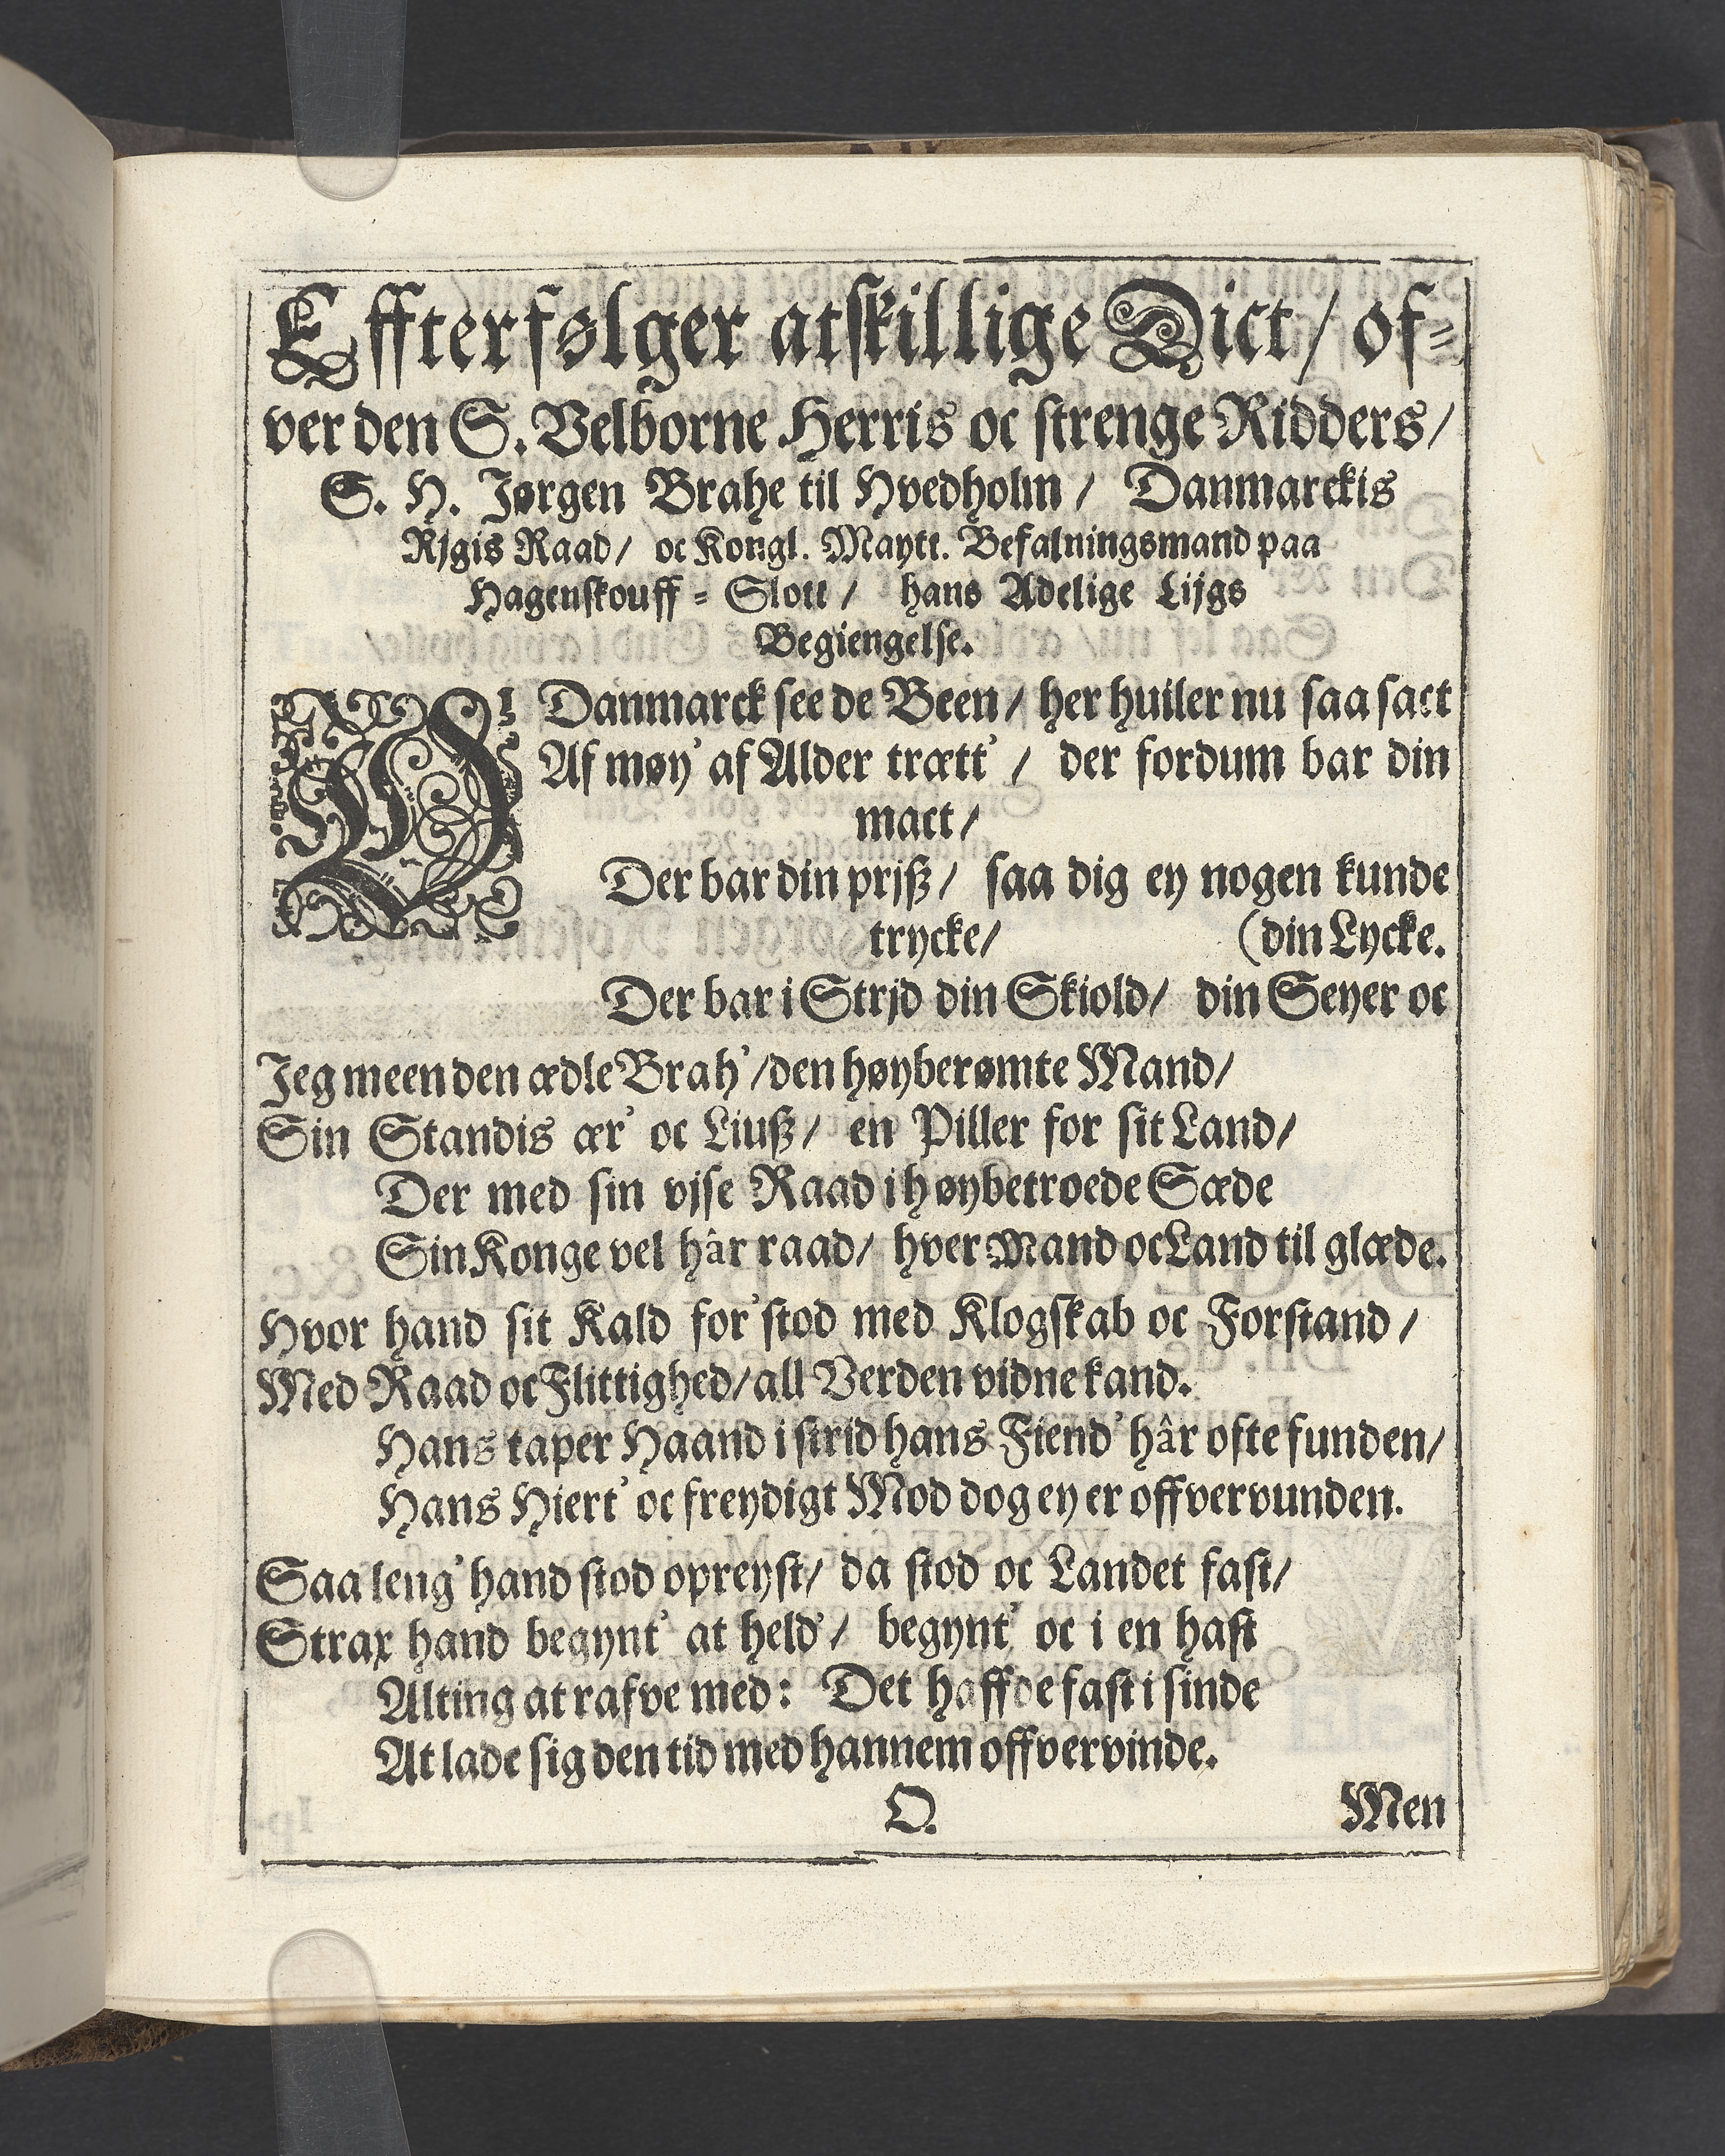 Effterfølger atskillige Dict/ of⸗
ver den S. Velborne Herris oc strenge Ridders/
S. H. Jørgen Brahe til Hvedholm/ Danmarckis
Rjgis Raad/ oc Kongl. Maytt. Befalningsmand paa
Hagenskouff⸗Slott/ hans Adelige Lijgs
Begiengelse.
Danmarck see de Been/ her huiler nu saa sact
Af møy' af Alder trætt'/ der fordum bar din
mact/
Der bar din prjß/ saa dig ey nogen kunde
trycke/ (din Lycke.
Der bar i Strjd din Skiold/ din Seyer oc
Jeg meen den ædle Brah'/den høyberømte Mand/
Sin Standis ær' oc Liuß/ en Piller for sit Land/
Der med sin vjse Raad i høybetroede Sæde
Sin Konge vel hâr raad/ hver Mand oc Land til glæde.
Hvor hand sit Kald for'stod med Klogskab oc Forstand/
Med Raad oc Flittighed/all Verden vidne kand.
Hans taper Haand i strid hans Fiend' hâr ofte funden/
Hans Hiert' oc freydigt Mod dog ey er offvervunden.
Saa leng' hand stod opreyst/ da stod oc Landet fast/
Strax hand begynt' at held'/ begynt' oc i en hast
Alting at rafve med: Det haffde fast i sinde
At lade sig den tid med hannem offvervinde.
O. Men